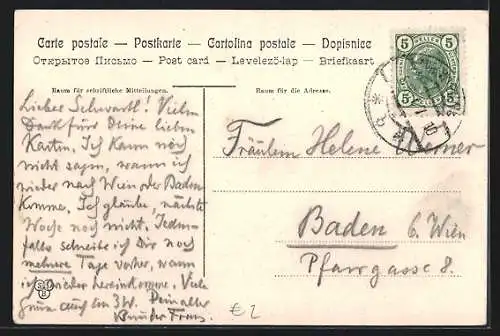 Carte postale — Postkarte — Cartolina postale — Dopisnice
Открытое Письмо — Post card — Levelező-lap — Briefkaart
Raum für schriftliche Mitteilungen.
Raum für die Adresse.
5 HELLER 5
5 5
Lieber Schwartl! Vielen
Dank für Deine lieben
Karten. Ich kann noch
nicht sagen, wann ich
wieder nach Wien oder Baden
komme. Ich glaube, nächste
Woche noch nicht. Jeden-
falls schreibe ich Dir noch
mehrere Tage vorher, wann
ich wieder hereinkomme. Viele
Grüße auch an Dein alter
Bruder Franz.
Fräulein Helene Werner
Baden b. Wien
Pfarrgasse 8.
€ 2